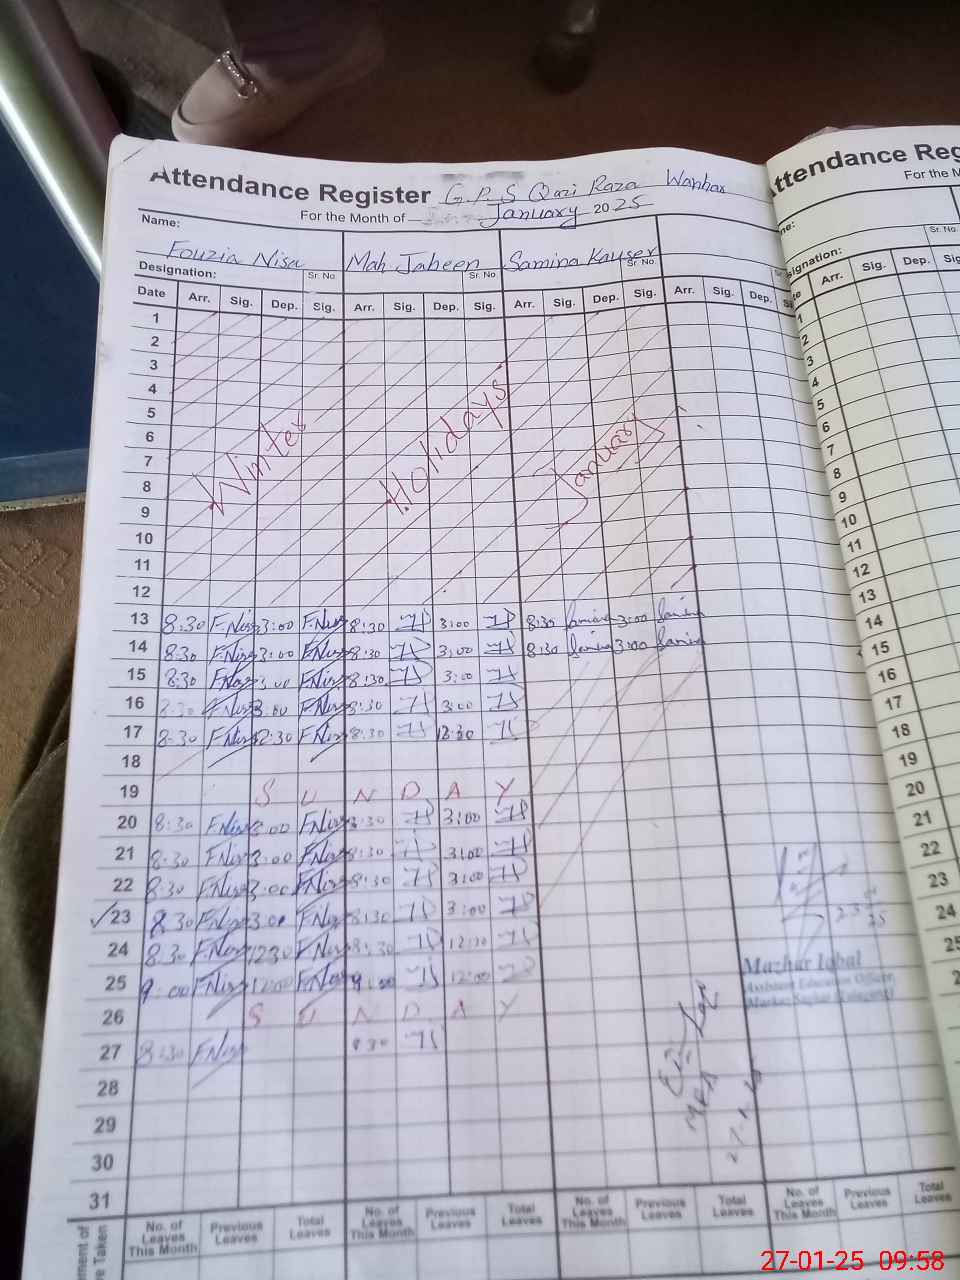 Attendance Register G.P.S Qazi Raza Wanhar
For the Month of January 2025
Name:
Fouzia Nisa Mah Jabeen Samina Kauser
Designation: Sr. No Sr. No Sr. No.
Date Arr. Sig. Dep. Sig. Arr. Sig. Dep. Sig. Arr. Sig. Dep. Sig. Arr. Sig. Dep.
1
2
3
4
5
6
7
8
9
10
11
12
Winter Holidays January
13 8:30 F.Nisa 3:00 F.Nisa 8:30 3:00 8:30 Samina 3:00 Samina
14 8:30 F.Nisa 3:00 F.Nisa 8:30 3:00 8:30 Samina 3:00 Samina
15 8:30 F.Nisa 3:00 F.Nisa 8:30 3:00
16 8:30 F.Nisa 3:00 F.Nisa 8:30 3:00
17 8:30 F.Nisa 12:30 F.Nisa 8:30 12:30
18
19 S U N D A Y
20 8:30 F.Nisa 3:00 F.Nisa 8:30 3:00
21 8:30 F.Nisa 3:00 F.Nisa 8:30 3:00
22 8:30 F.Nisa 3:00 F.Nisa 8:30 3:00
23 8:30 F.Nisa 3:00 F.Nisa 8:30 3:00
24 8:30 F.Nisa 1230 F.Nisa 8:30 12:30
25 9:00 F.Nisa 12:00 F.Nisa 9:00 12:00
26 S U N D A Y
27 8:30 F.Nisa 8:30
28
29
30
31
Mazhar Iqbal
Assistant Education Officer
No. of Leaves This Month Previous Leaves Total Leaves No. of Leaves This Month Previous Leaves Total Leaves No. of Leaves This Month Previous Leaves Total Leaves No. of Leaves This Month Previous Leaves Total Leaves
Attendance Reg
For the M
Sr. No.
signation:
Arr. Sig. Dep. Sig
1
2
3
4
5
6
7
8
9
10
11
12
13
14
15
16
17
18
19
20
21
22
23
24
25
27-01-25 09:58